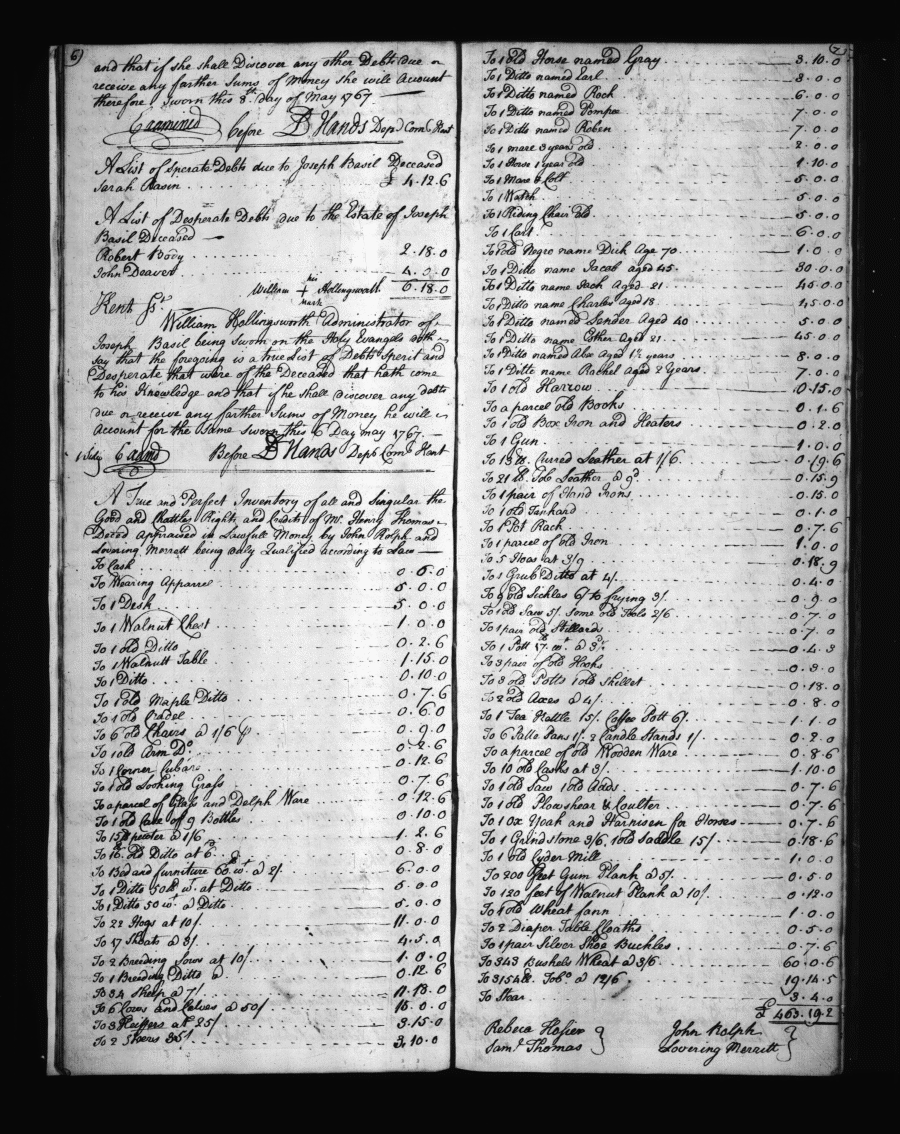 6)
and that if she shall Discover any other Debts due or
receive any farther Sums of Money she will Account
therefore Sworn this 8th Day of May 1767
Examined before D Hands Depd Coms Kent
A List of Sperate Debts due to Joseph Basil Deceased
Sarah Rasin £ 4.12.6
A List of Desperate Debts due to the Estate of Joseph
Basil Deceased
Robert Body 2.18.0
John Deaver 4.0.0
6.18.0
William his + mark Hollingsworth
Kent Ss.
William Hollingsworth Administrator of
Joseph Basil being Sworn on the Holy Evangels doth
say that the foregoing is a true List of Debts Sperit and
Desperate that were of the Deceased that hath come
to his Knowledge and that if he shall Discover any debts
due or receive any farther Sums of Money he will
account for the Same sworn this 6 Day may 1767
Examd Before D Hands Depd Coms Kent
A True and Perfect Inventory of all and Singular the
Good and Chattles Rights and Credits of Mr. Henry Thomas
Deced Appraised in Lawfull Money by John Rolph and
Lovering Merrett being Duly Qualified according to Law
To Cash 0.6.0
To Wearing Apparel 5.0.0
To 1 Desk 5.0.0
To 1 Walnut Chest 1.0.0
To 1 old Ditto 0.2.6
To 1 Walnutt Table 1.15.0
To 1 Ditto 0.10.0
To 1 old Maple Ditto 0.7.6
To 1 old Cradel 0.6.0
To 6 old Chairs @ 1/6 p 0.9.0
To 1 old Arm Do. 0.2.6
To 1 Corner Cubard 0.12.6
To 1 old Looking Glass 0.7.6
To a parcel of Glass and Delph Ware 0.12.6
To 1 old Case of 9 Bottles 0.10.0
To 15 lb pewter @ 1/6 1.2.6
To 16 lb old Ditto at 6d 0.8.0
To 1 Bed and furniture 60 wt @ 2/ 6.0.0
To 1 Ditto 50 lb wt at Ditto 5.0.0
To 1 Ditto 50 wt @ Ditto 5.0.0
To 22 Hogs at 10/ 11.0.0
To 17 Shoats @ 5/ 4.5.0
To 2 Breeding Sows at 10/ 1.0.0
To 1 Breeding Ditto @ 0.12.6
To 34 Sheep @ 7/ 11.18.0
To 6 Cows and Calves @ 50/ 15.0.0
To 3 Heiffers at 25/ 3.15.0
To 2 Steers 35/ 3.10.0
7
To 1 Old Horse named Gray 3.10.0
To 1 Ditto named Earl 3.0.0
To 1 Ditto named Rock 6.0.0
To 1 Ditto named Pompee 7.0.0
To 1 Ditto named Roben 7.0.0
To 1 mare 3 years old 2.0.0
To 1 Horse 1 year old 1.10.0
To 1 Mare & Colt 5.0.0
To 1 Watch 5.0.0
To 1 Riding Chair old 5.0.0
To 1 Cart 6.0.0
To 1 old Negro name Dick Age 70 1.0.0
To 1 Ditto name Jacob aged 45 30.0.0
To 1 Ditto name Jack Aged 21 45.0.0
To 1 Ditto name Charles Aged 18 45.0.0
To 1 Ditto named Sender Aged 40 5.0.0
To 1 Ditto name Esther Aged 21 45.0.0
To 1 Ditto named Alex Aged 1½ years 8.0.0
To 1 Ditto name Rachel aged 2 Years 7.0.0
To 1 old Harrow 0.15.0
To a parcel old Books 0.1.6
To 1 old Box Iron and Heaters 0.2.0
To 1 Gun 1.0.0
To 13 lb. Curred Leather at 1/6 0.19.6
To 21 lb. Job Leather @ 9d 0.15.9
To 1 pair of Hand Irons 0.15.0
To 1 old Tankard 0.1.0
To 1 Pot Rack 0.7.6
To 1 parcel of old Iron 1.0.0
To 5 Hoas at 3/9 0.18.9
To 1 Grub Ditto at 4/ 0.4.0
To 9 old Sickles 6/ to frying 3/ 0.9.0
To 1 old Saw 5/ Some old Tools 2/6 0.7.0
To 1 pair old Stillards 0.7.0
To 1 Pott 17 wt @ 3d 0.4.3
To 3 pair of old Hooks 0.3.0
To 3 old Potts 1 old Skillet 0.18.0
To 2 old Axes @ 4/ 0.8.0
To 1 Tea Kettle 15/ Coffee Pott 6/ 1.1.0
To 6 Patte Pans 1/ 2 Candle Stands 1/ 0.2.0
To a parcel of old Wooden Ware 0.8.6
To 10 old Casks at 3/ 1.10.0
To 1 old Saw 1 old Adds 0.7.6
To 1 old Plowshear & Coulter 0.7.6
To 1 Ox Yoak and Harnisen for Horses 0.7.6
To 1 Grindstone 3/6, 1 old Saddle 15/ 0.18.6
To 1 old Cyder Mill 1.0.0
To 200 feet Gum Plank @ 5/ 0.5.0
To 120 feet of Walnut Plank @ 10/ 0.12.0
To 1 old Wheat fann 1.0.0
To 2 Diaper Table Cloaths 0.5.0
To 1 pair Silver Shoe Buckles 0.7.6
To 343 Bushels Wheat @ 3/6 60.0.6
To 3154 lb. Tobo. @ 12/6 19.14.5
To Stear 3.4.0
£ 463.19.2
Rebeca Hosier } John Rolph }
Saml. Thomas Lovering Merritt